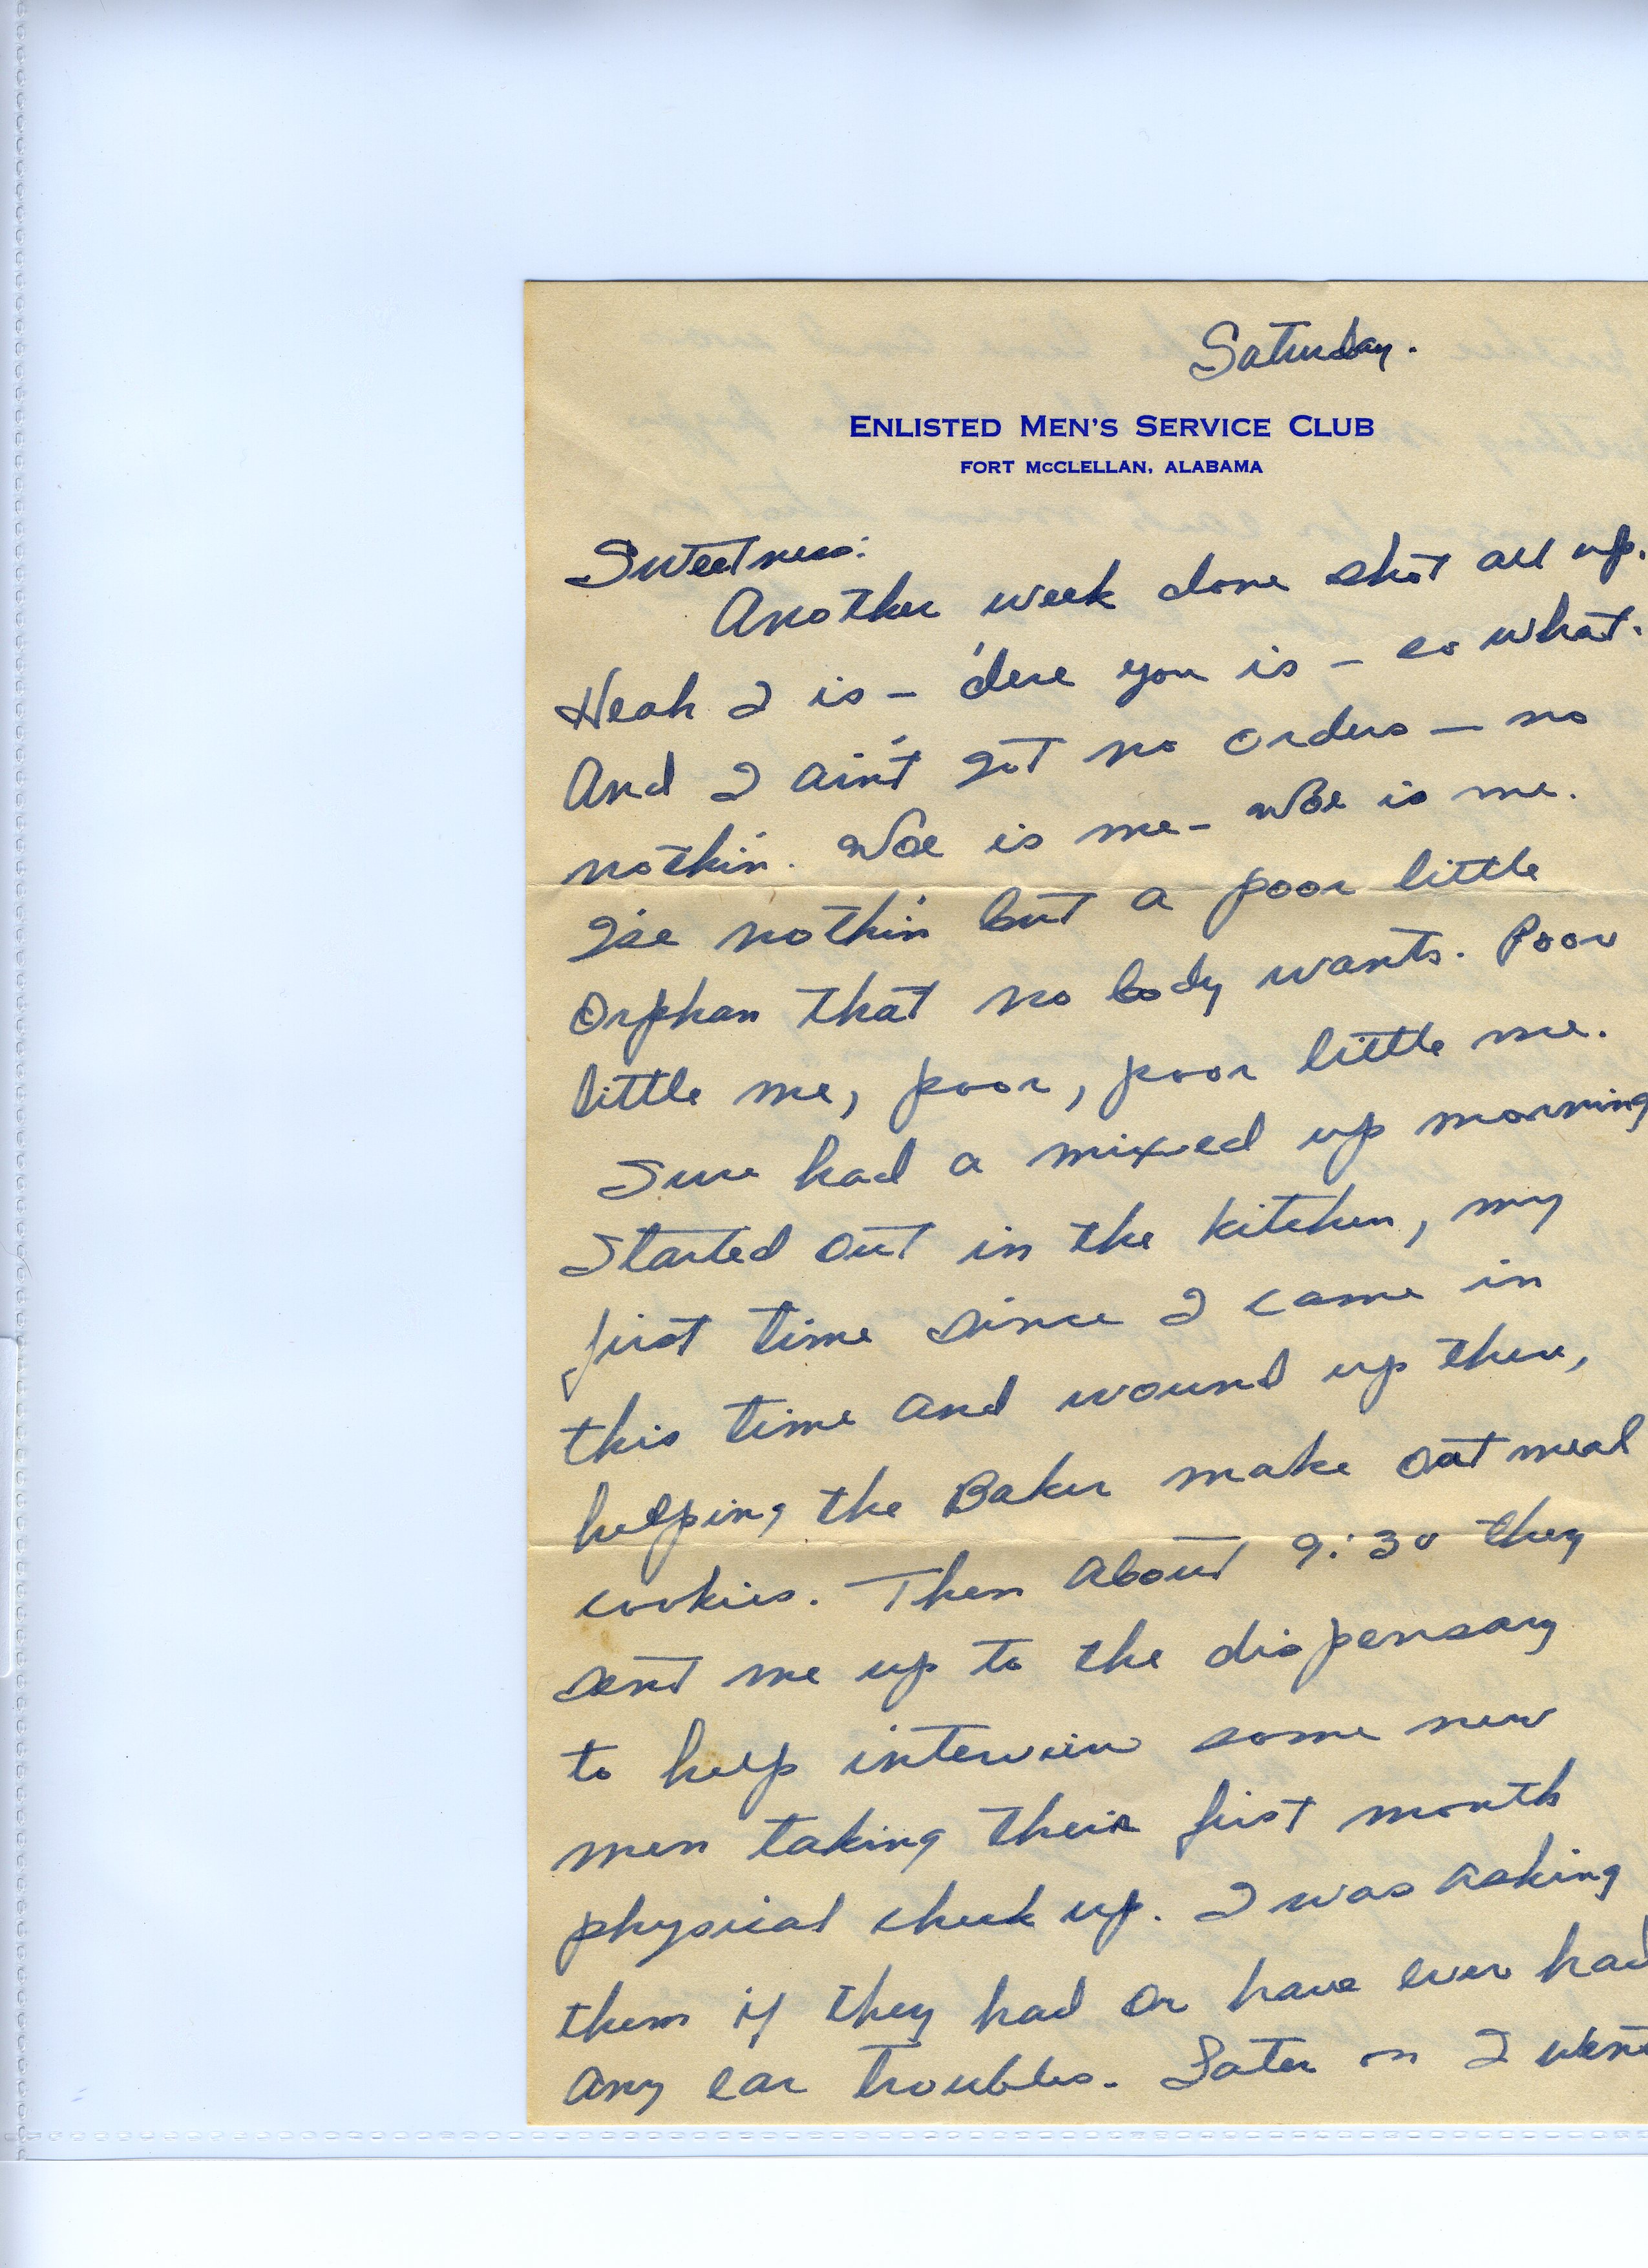 Saturday.
ENLISTED MEN'S SERVICE CLUB
FORT MCCLELLAN, ALABAMA
Sweetness:
Another week done shot all up.
Heah I is - 'dere you is - so what.
And I ain't got no orders - no
nothin'. Woe is me - Woe is me.
I'se nothin' but a poor little
Orphan that no body wants. Poor
little me, poor, poor little me.
Sure had a mixed up morning
Started out in the kitchen, my
first time since I came in
this time and wound up there,
helping the Baker make oat meal
cookies. Then about 9:30 they
sent me up to the dispensary
to help interview some new
men taking their first month
physical check up. I was asking
them if they had or have ever had
any ear troubles. Later on I went